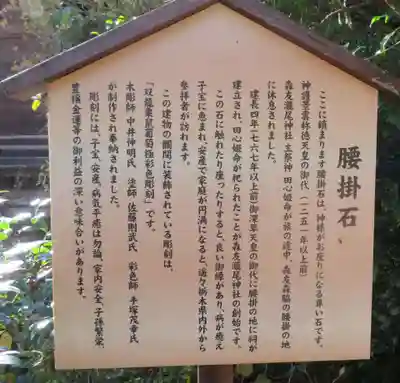 腰掛石
ここに鎮まります腰掛石は、神様がお座りになる尊い石です。
神護景雲称徳天皇の御代(一二五一年以上前)
森友瀧尾神社 主祭神 田心姫命が旅の途中、森友森脇の腰掛の地
に休息されました。
建長四年(七六七年以上前)御深草天皇の御代に腰掛の地に祠が
建立され、田心姫命が祀られたことが森友瀧尾神社の創始です。
この石に触れたり座ったりすると、良い御縁があり、病が癒え
子宝に恵まれ、安産で家庭が円満になると、遠々栃木県内外から
参拝者が訪れます。
この建物の欄間に装飾されている彫刻は、
「双龍栗鼠葡萄極彩色彫刻」です。
木彫師 中井伸明氏 塗師 佐藤則武氏 彩色師 手塚茂幸氏
が制作され奉納されました。
彫刻には、子宝、安産、病気平癒は勿論、家内安全、子孫繁栄、
豊穣金運等の御利益の深い意味合いがあります。